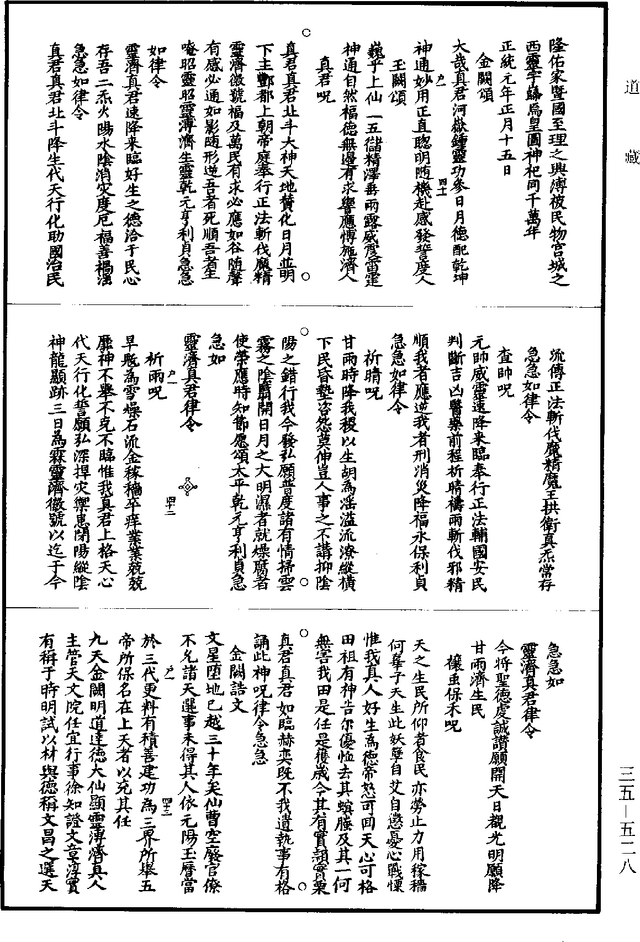 道藏
隆佑家暨國至理之興溥被民物宮城之
西靈宇歸焉皇圖神祀同千萬年
正統元年正月十五日
金闕頌
大哉真君河嶽鍾靈功參日月德配乾坤
神通妙用正直聰明隨機赴感發誓度人
玉闕頌
巍乎上仙一五儲精澤垂雨露威震雷霆
神通自然福德無邊有求響應博施濟人
真君呪
真君真君北斗大神天地贊化日月並明
下主酆都上朝帝庭奉行正法斬伐魔精
靈濟徽號福及萬民有求必應如谷隨聲
有感必通如影隨形逆吾者死順吾者生
唵昭靈昭靈溥濟生靈乾元亨利貞急急
如律令
靈濟真君速降來臨好生之德洽于民心
存吾二炁火陽水陰消災度厄福善禍淫
急急如律令
真君真君北斗降生代天行化助國治民
流傳正法斬伐魔精魔王拱衛真炁常存
急急如律令
查帥呪
元帥威靈速降來臨奉行正法輔國安民
判斷吉凶醫藥前程祈晴禱雨斬伐邪精
順我者應逆我者刑消災降福永保利貞
急急如律令
祈晴呪
甘雨時降我稷以生胡為淫溢流潦縱橫
下民昏墊咨怨莫伸豈人事之不講抑陰
陽之錯行我今發弘願普度諸有情掃雲
霧之陰翳開日月之大明濕者就燥腐者
使榮應時知節應頌太平乾元亨利貞急
急如
靈濟真君律令
祈雨呪
旱魃為雪爍石流金稼穡卒痒業業兢兢
靡神不舉不克不臨惟我真君上格天心
代天行化誓願弘深捍灾禦患閉陽縱陰
神龍顯跡三日為霖靈濟徽號以迄于今
急急如
靈濟真君律令
今將聖德虔誠讚願開天日覩光明願降
甘雨濟生民
禳虫保禾呪
天之生民所仰者食民亦勞止力用稼穡
何辜于天生此妖孽自艾自懲憂心戰慄
惟我真人好生為德帝怒可回天心可格
田祖有神告尔優恤去其螟螣及其一何
無害我田是任是穫歲今其有實穎實栗
真君真君如臨赫奕既不我遺執事有格
誦此神呪律令急急
金闕誥文
文星墮地已越三十年矣仙曹空廢官僚
不允諸天選事未得其人依元陽玉曆當
於三代更料有積善建功為三界所舉五
帝所保名在上天者以充其任
九天金闕明道達德大仙顯靈溥濟真人
主管天文院任宜行事徐知證文章淳實
有稱于時明試以材與德稱文昌之選天
三五—五二八